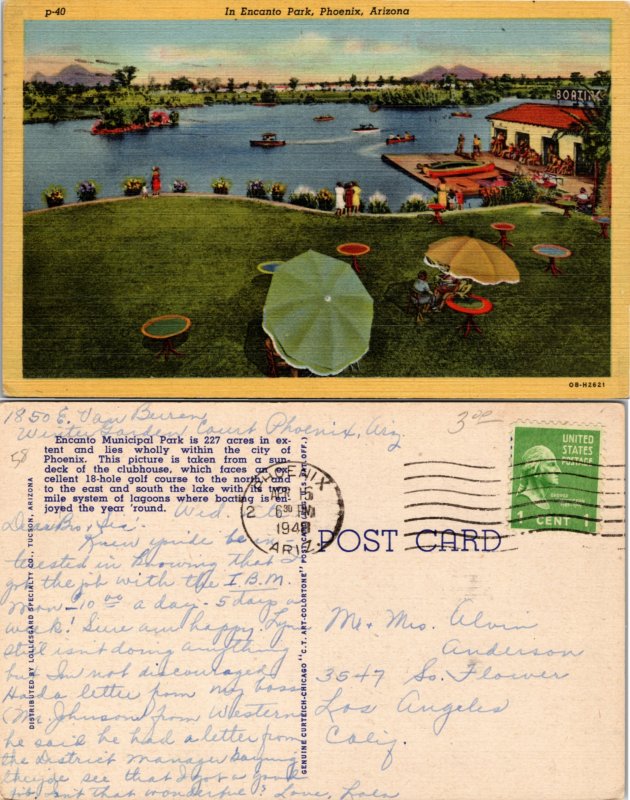 p-40
In Encanto Park, Phoenix, Arizona
BOATING
OB-H2621
1850 E. Van Buren
Winter Garden Court Phoenix, Ariz
3.00
58
Encanto Municipal Park is 227 acres in ex-
tent and lies wholly within the city of
Phoenix. This picture is taken from a sun-
deck of the clubhouse, which faces an ex-
cellent 18-hole golf course to the north and
to the east and south the lake with its two
mile system of lagoons where boating is en-
joyed the year 'round.
Wed.
Dear Bro & Sis:
Knew you'de be in-
terested in knowing that I
got the job with the I.B.M.
Mon - 10.00 a day - 5 days a
week! Sure am happy. Lyn
still isn't doing anything
but I'm not discouraged.
Had a letter from my boss
(Mr. Johnson) from Western
he said he had a letter from
the District Manager saying
they'de see that I got a good
job. Isn't that wonderful? Love,
DISTRIBUTED BY LOLLESGARD SPECIALTY CO., TUCSON, ARIZONA
GENUINE CURTEICH-CHICAGO "C.T. ART-COLORTONE" POST CARD (REG. U.S. PAT. OFF.)
PHOENIX
APR 5
12 6 30 PM
194
ARIZ
POST CARD
UNITED
STATES
POSTAGE
GEORGE
WASHINGTON
1 CENT 1
Mr & Mrs. Alvin
Anderson
3547 So. Flower
Los Angeles
Calif.